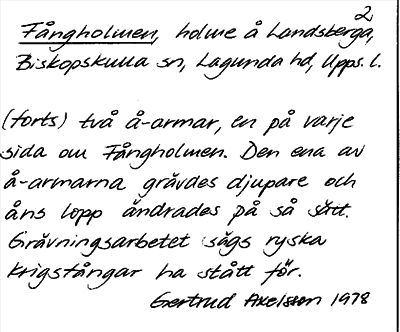 2
Fångholmen, holme å Landsberga,
Biskopskulla sn, Lagunda hd, Upps. l.
(forts) två å-armar, en på varje
sida om Fångholmen. Den ena av
å-armarna grävdes djupare och
åns lopp ändrades på så sätt.
Grävningsarbetet sägs ryska
krigsfångar ha stått för.
Gertrud Axelsson 1978